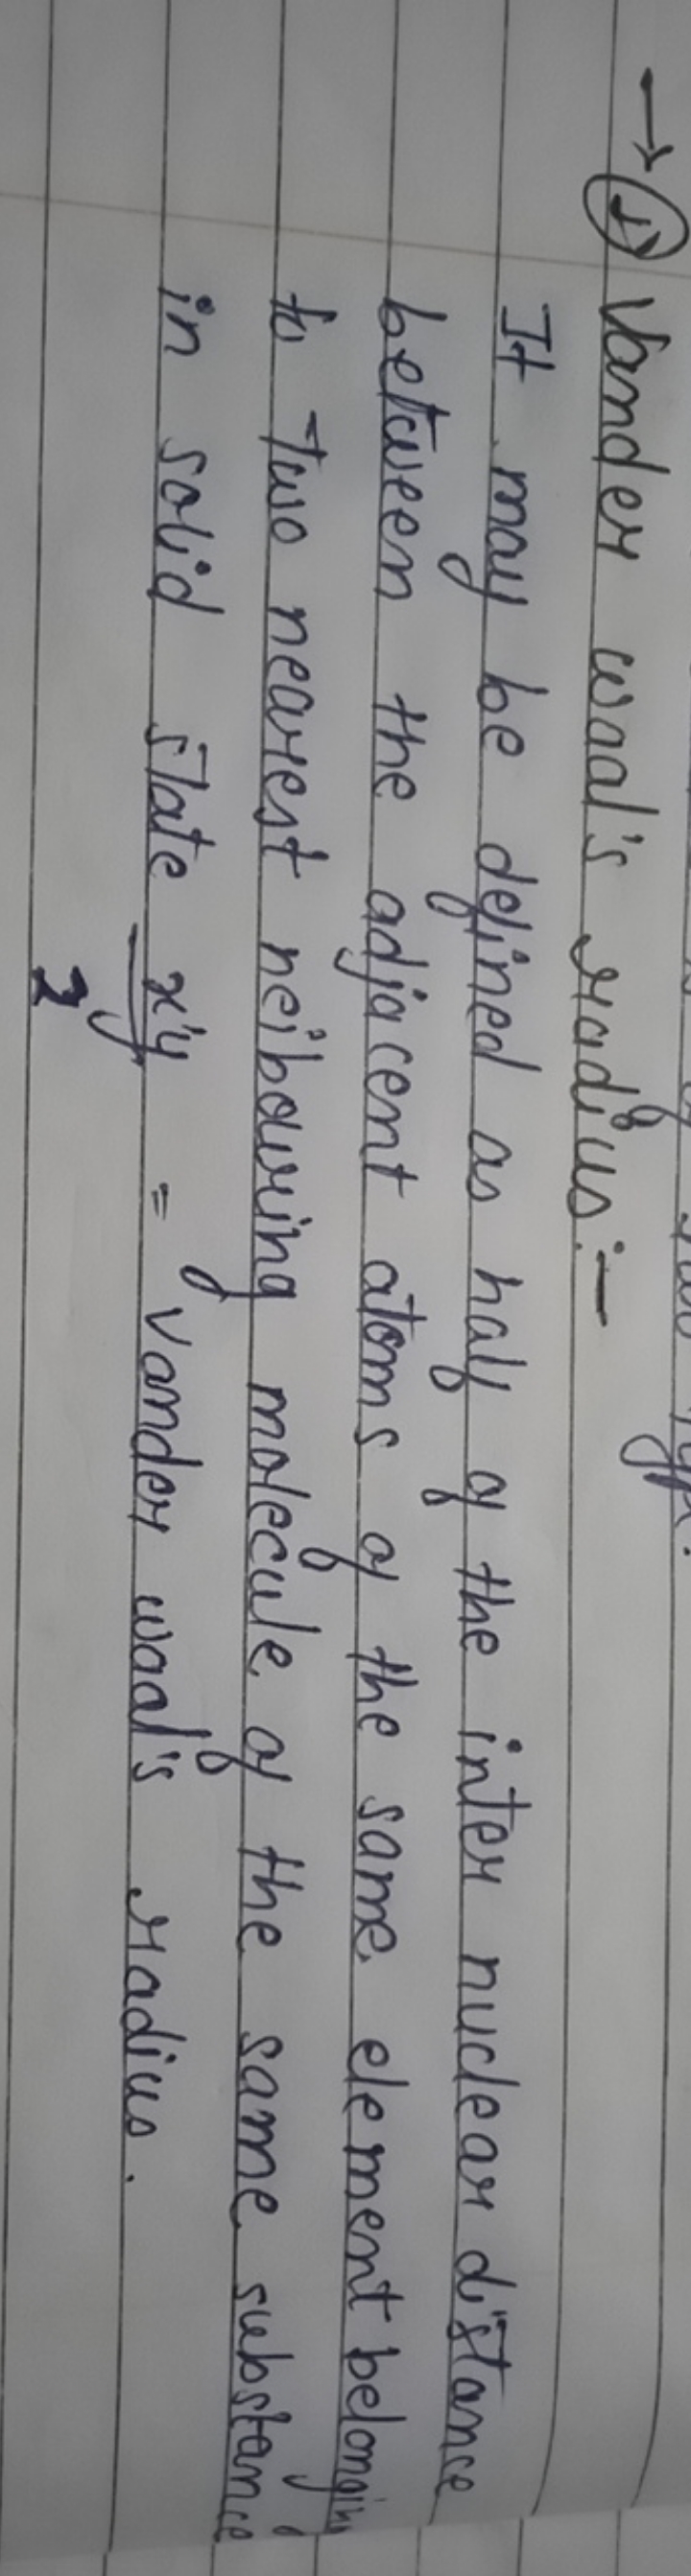 → ① Vander waal's radius:-
It may be defined as half of the inter nuclear distance
between the adjacent atoms of the same element belonging
to two nearest neibouring molecule of the same substance
in solid state x'y/2 = Vander waal's radius.